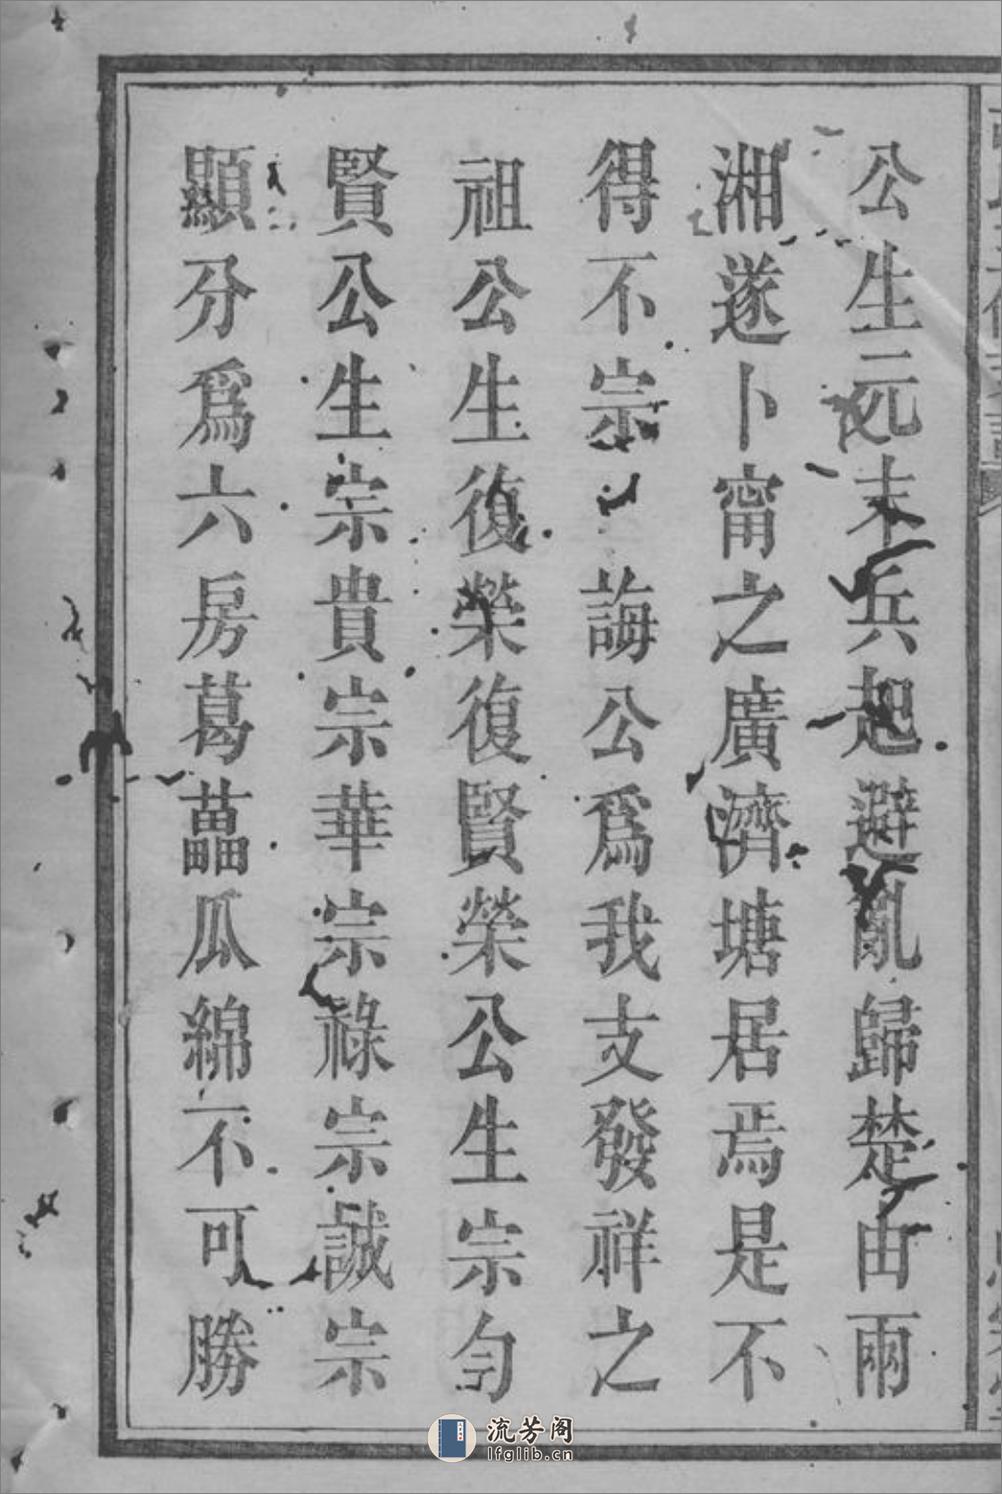 公生元末兵起避亂歸楚由雨
湘遂卜甯之廣濟塘居焉是不
得不宗誨公爲我支發祥之
祖公生復榮復賢榮公生宗勻
賢公生宗貴宗華宗祿宗誠宗
顯分爲六房葛藟瓜綿不可勝
流芳阁
lfglib.cn